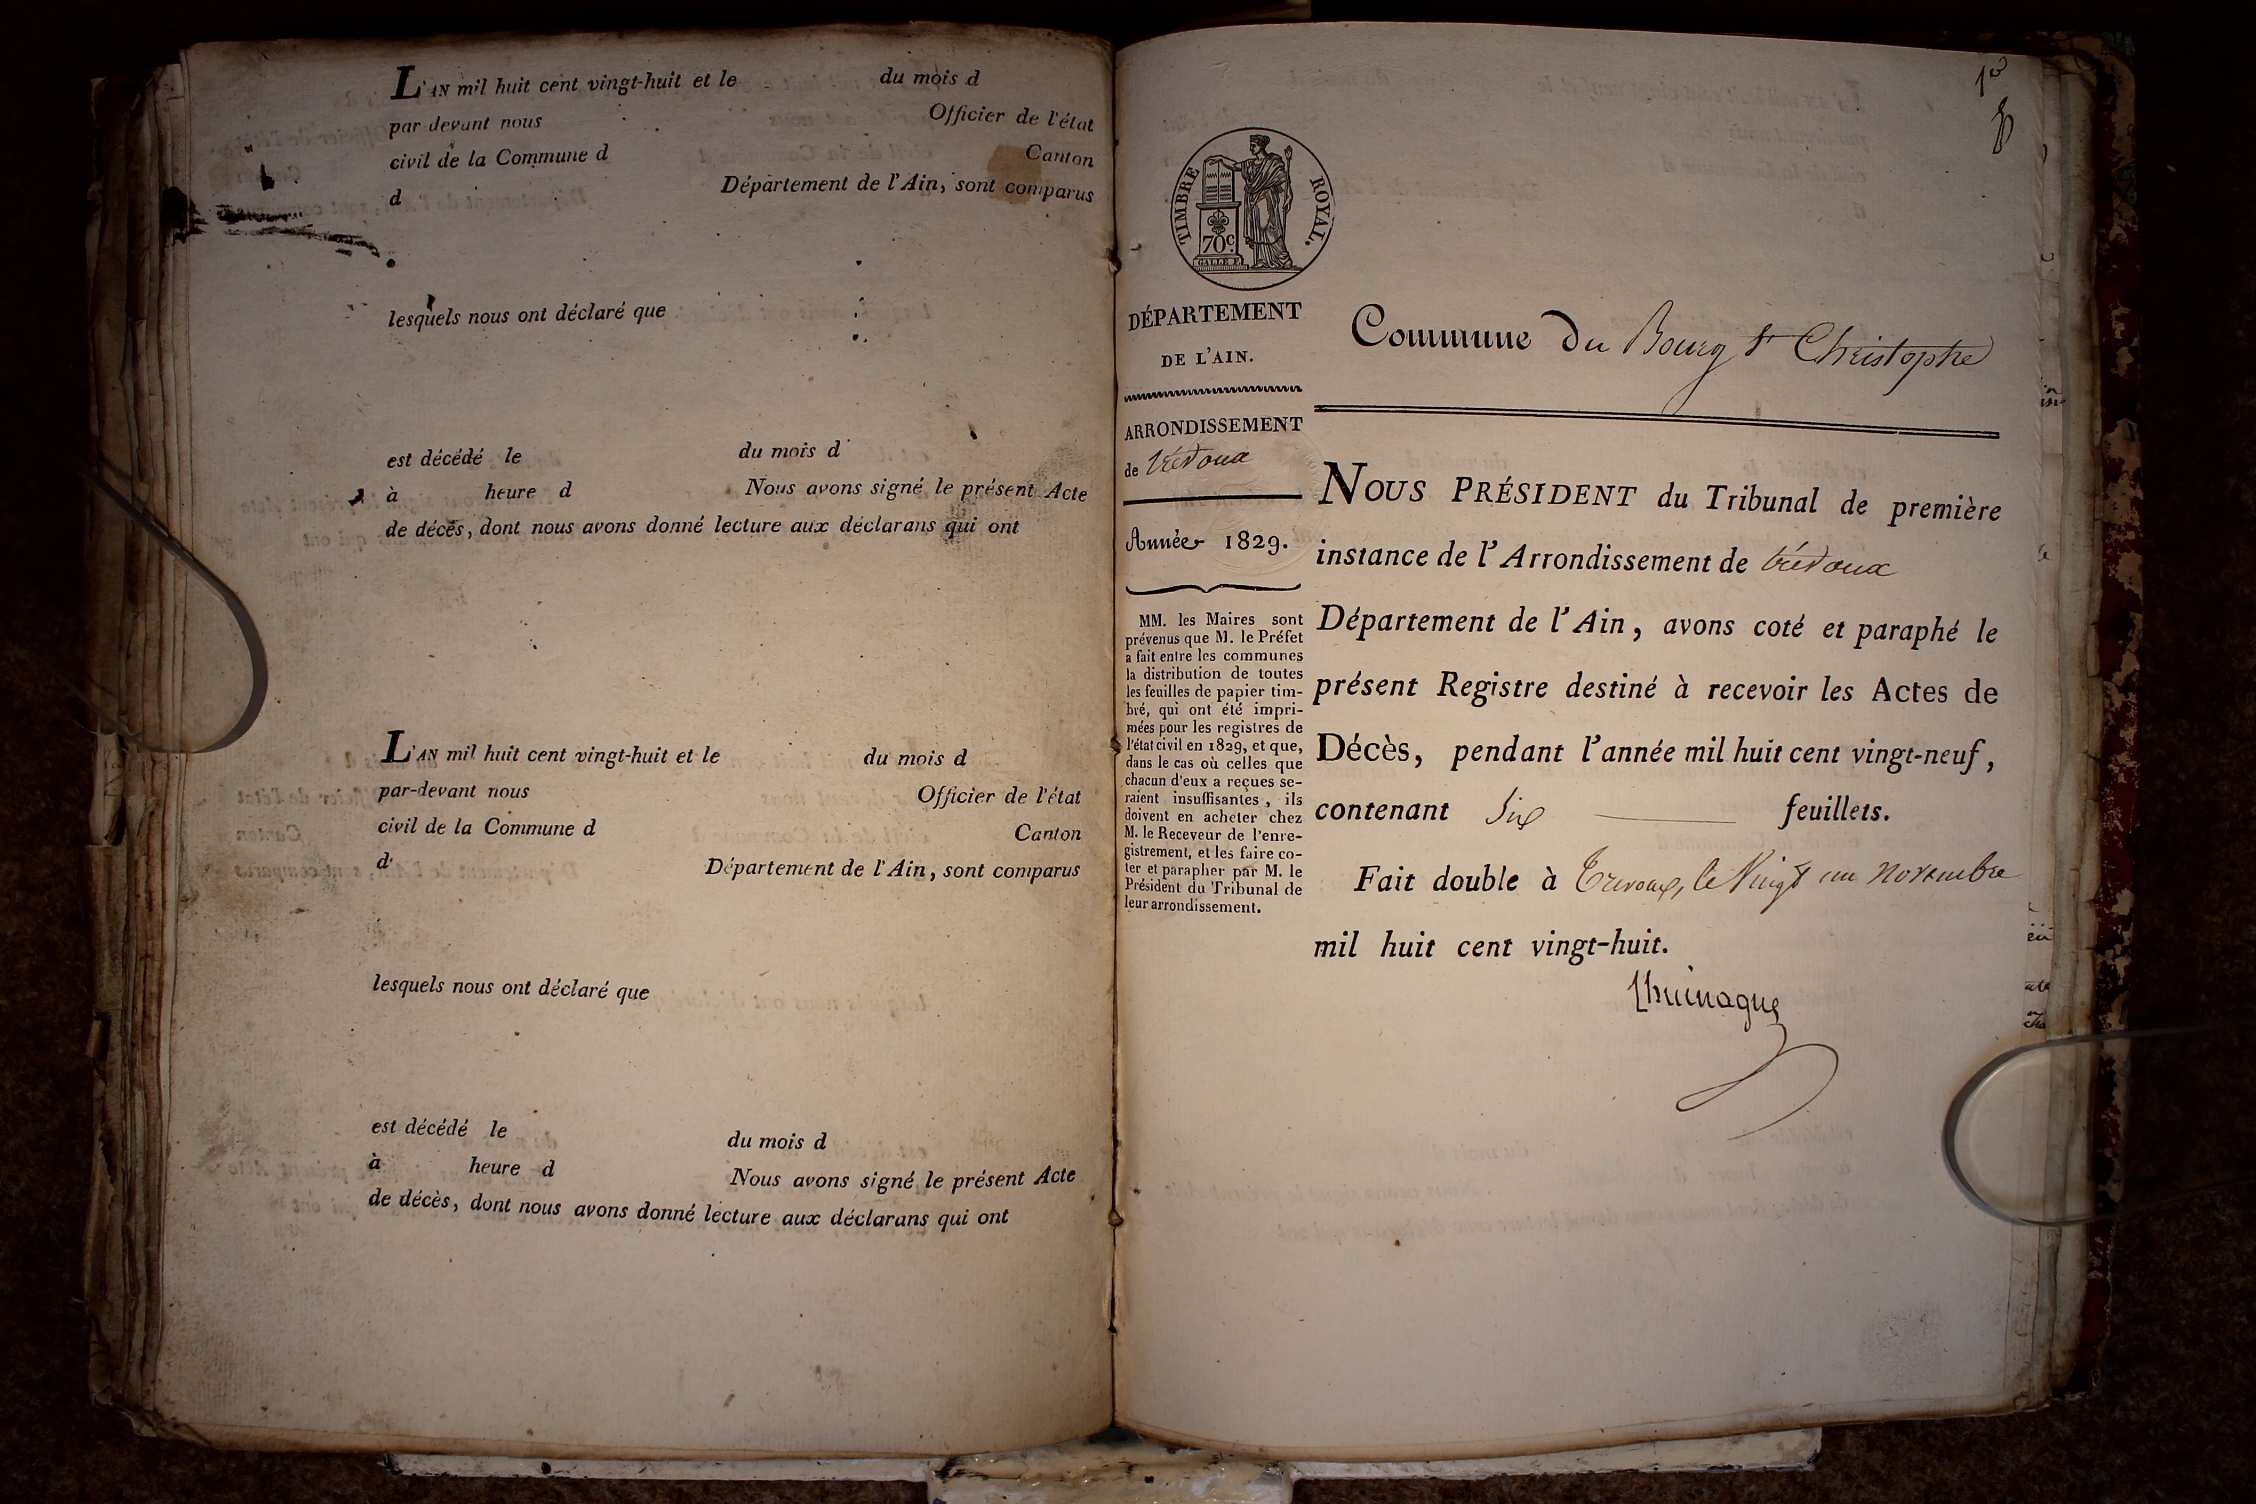 L'AN mil huit cent vingt-huit et le du mois d
par devant nous Officier de l'état
civil de la Commune d Canton
d Département de l'Ain, sont comparus
lesquels nous ont déclaré que
est décédé le du mois d
à heure d Nous avons signé le présent Acte
de décès, dont nous avons donné lecture aux déclarans qui ont
L'AN mil huit cent vingt-huit et le du mois d
par-devant nous Officier de l'état
civil de la Commune d Canton
d Département de l'Ain, sont comparus
lesquels nous ont déclaré que
est décédé le du mois d
à heure d Nous avons signé le présent Acte
de décès, dont nous avons donné lecture aux déclarans qui ont
1er
TIMBRE ROYAL.
70c.
GALLE F.
DÉPARTEMENT
DE L'AIN.
ARRONDISSEMENT
de trévoux
Année 1829.
MM. les Maires sont
prévenus que M. le Préfet
a fait entre les communes
la distribution de toutes
les feuilles de papier tim-
bré, qui ont été impri-
mées pour les registres de
l'état civil en 1829, et que,
dans le cas où celles que
chacun d'eux a reçues se-
raient insuffisantes, ils
doivent en acheter chez
M. le Receveur de l'enre-
gistrement, et les faire co-
ter et parapher par M. le
Président du Tribunal de
leur arrondissement.
Commune du Bourg St Christophe
NOUS PRÉSIDENT du Tribunal de première
instance de l'Arrondissement de trévoux
Département de l'Ain, avons coté et paraphé le
présent Registre destiné à recevoir les Actes de
Décès, pendant l'année mil huit cent vingt-neuf,
contenant Six feuillets.
Fait double à Trevoux, le Vingt un novembre
mil huit cent vingt-huit.